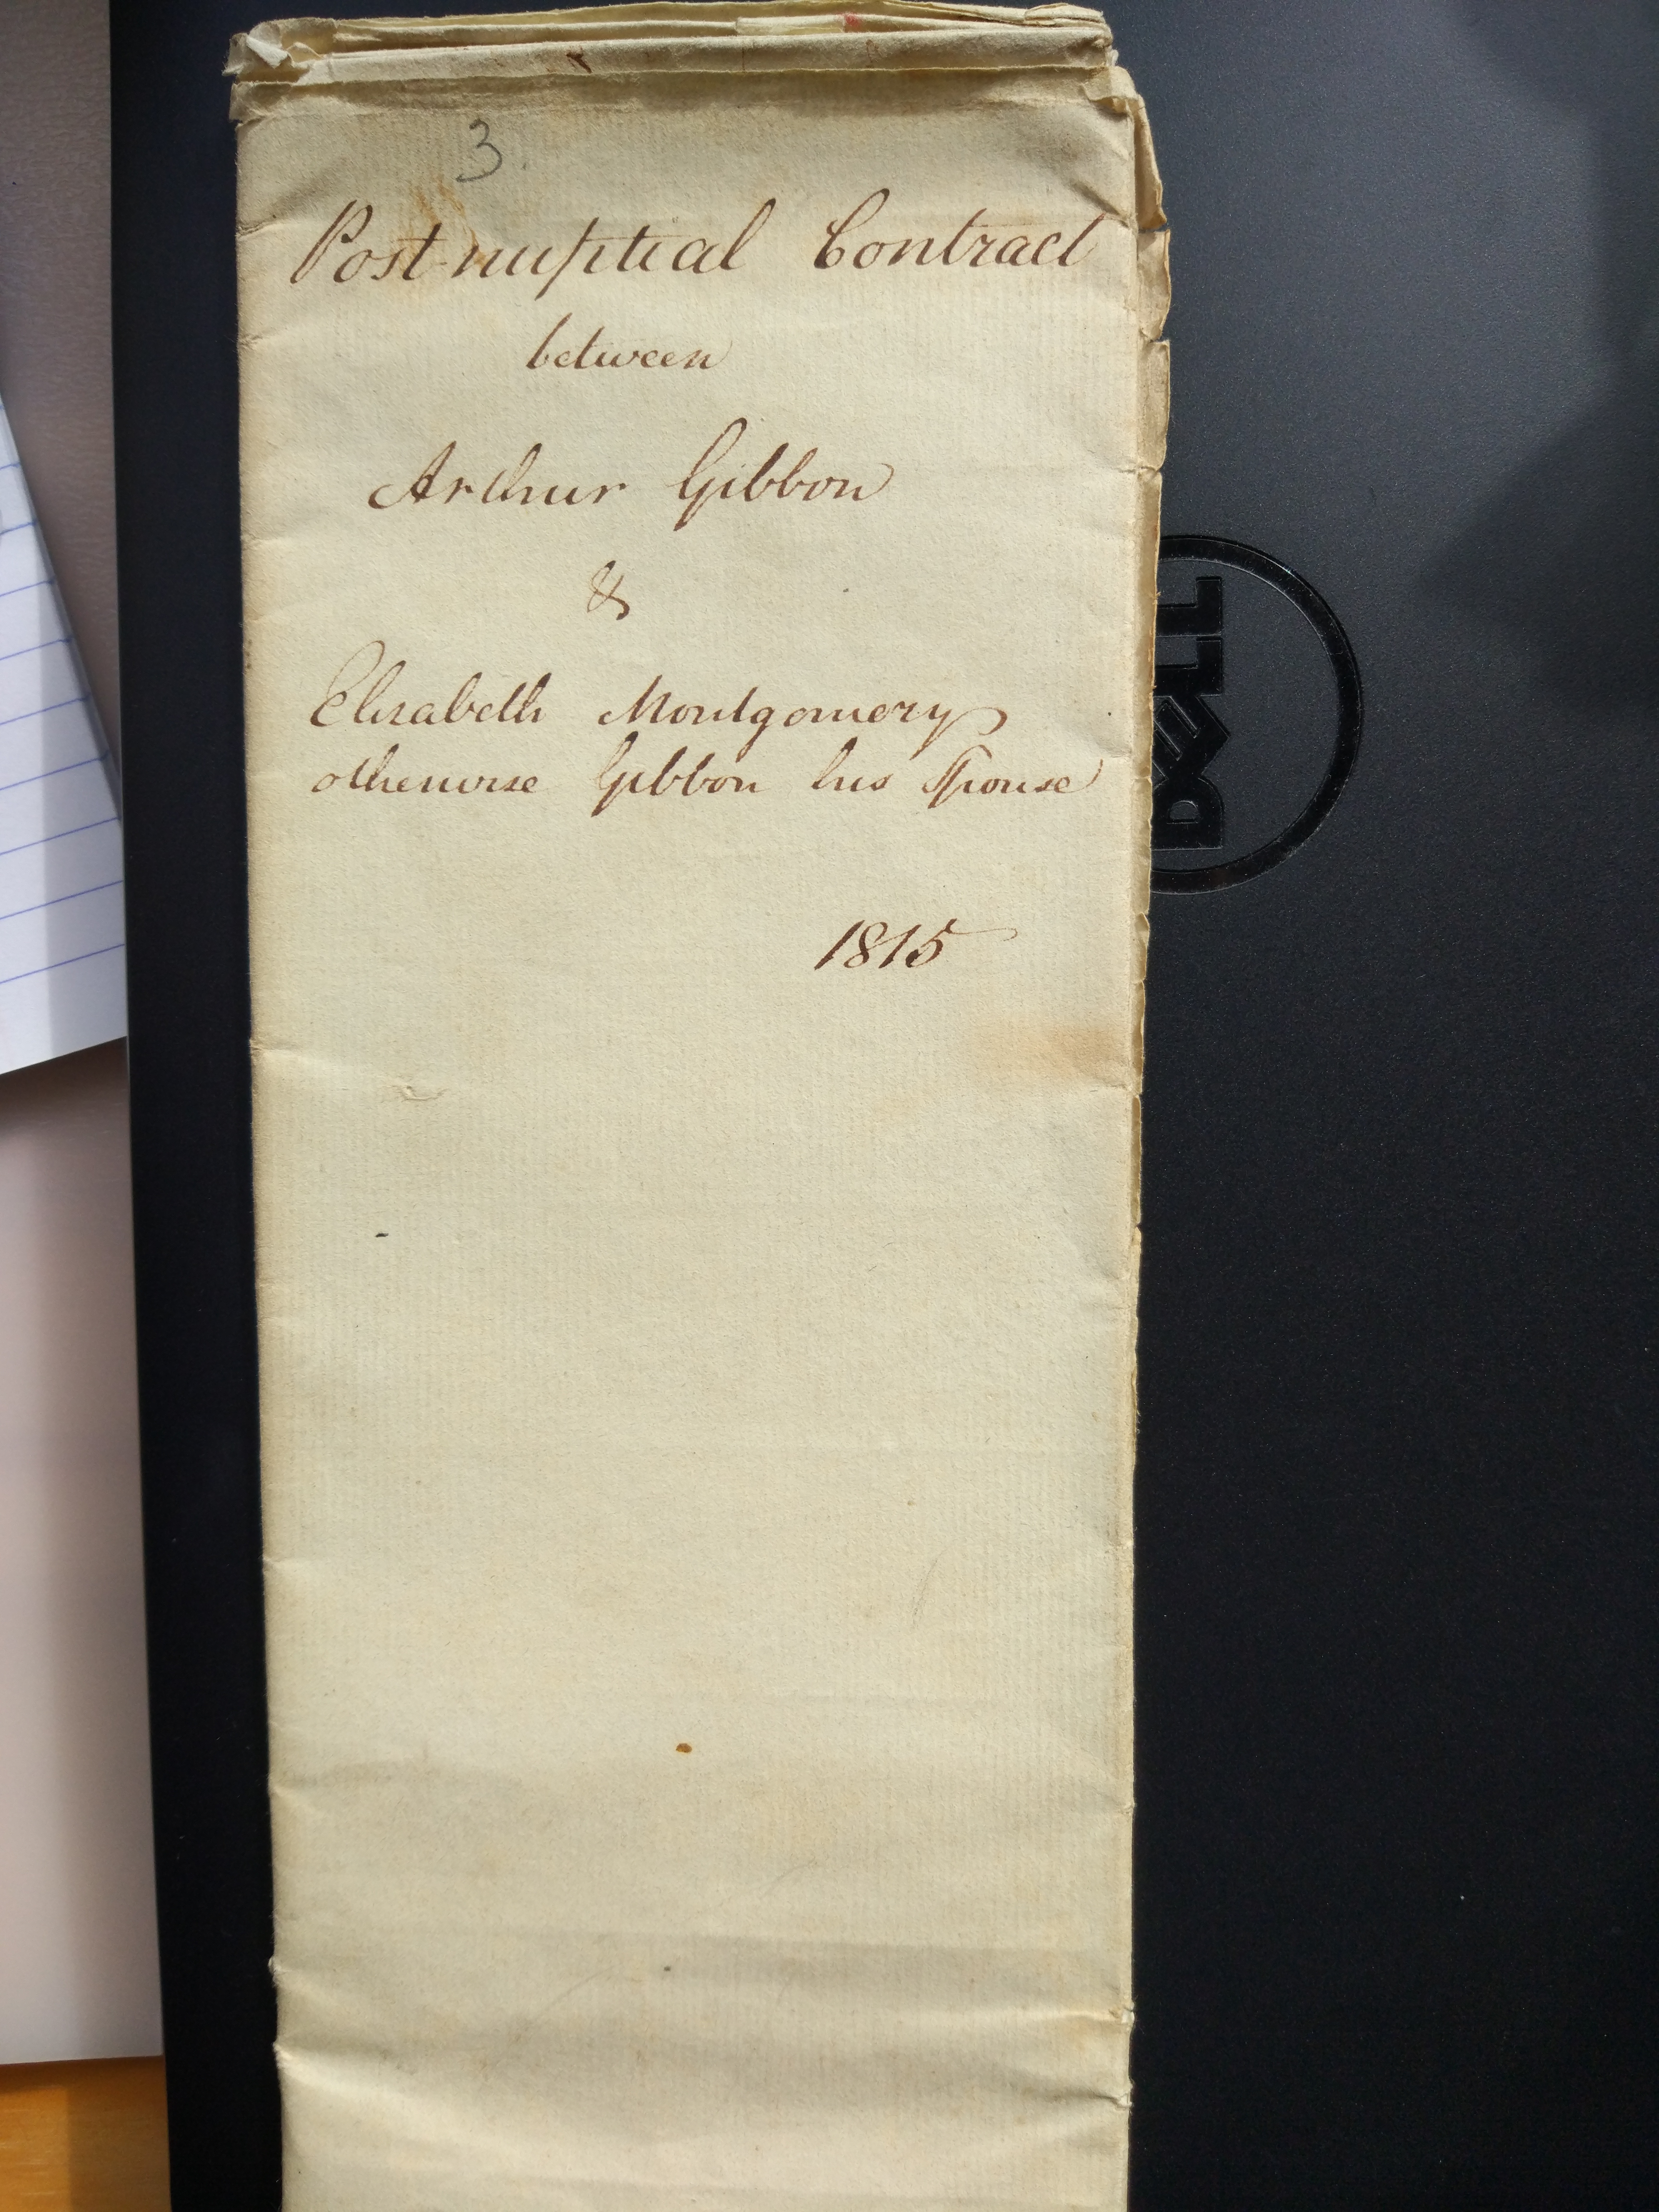 3.
Post-nuptial Contract
between
Arthur Gibbon
&
Elisabeth Montgomery
otherwise Gibbon his Spouse
1815
DELL